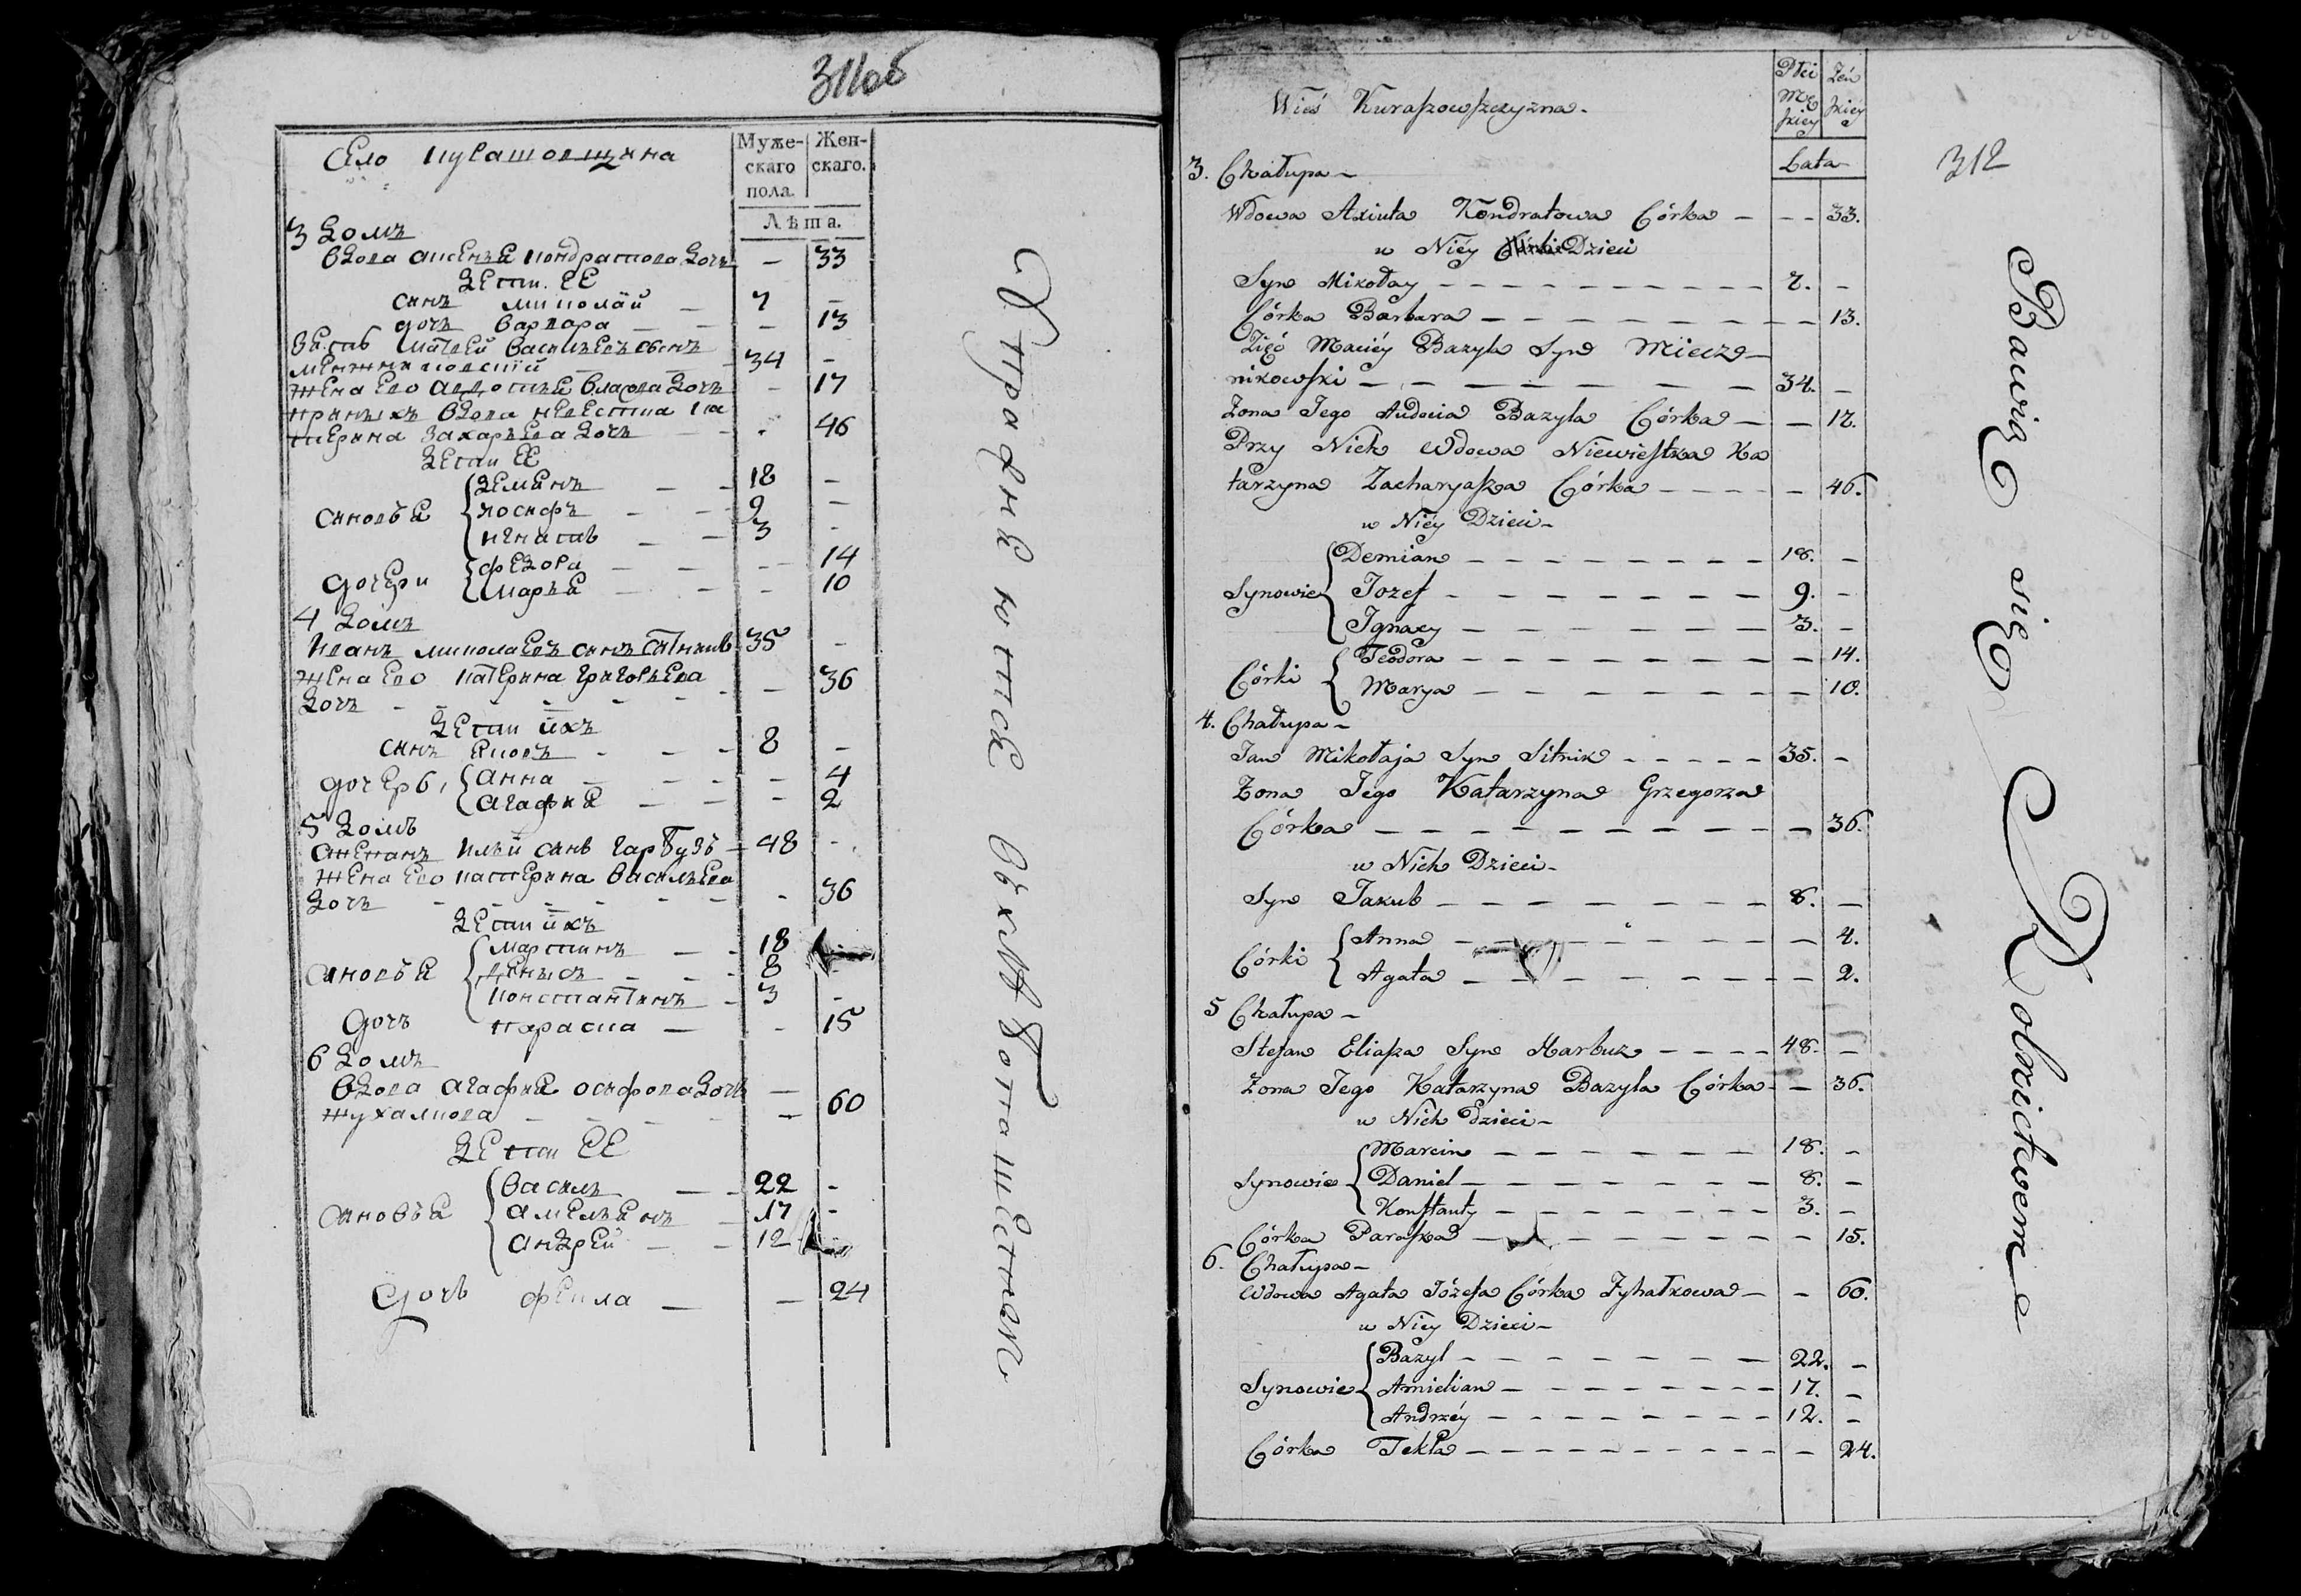 311об
Село Курашовщина
Муже-
скаго
пола.
Жен-
скаго.
Лѣта.
3 домъ
вдова аксенья кондратова дочь — 33
дети ее
синъ миколай — 7 —
дочь варвара — — — 13
зять матвей васильевъ сынъ
мечниковский 34 —
жена ево авдотья власова дочь — 17
при ныхъ вдова невестка ка
терина захарьева дочь — — . 46
дети ее
синовья
демянъ — — 18 —
иосифъ — — 9 —
игнатъ — — 3 -
дочери
федора — — — 14
марья — — - 10
4 домъ
иванъ миколаевъ синъ ситникъ 35 -
жена ево катерина григорьева
дочь - - - - - - — 36
дети ихъ
синъ яковъ - — - 8 —
дочери
анна — — - — 4
агафия — — - 2
5 домъ
степанъ ильи синъ гарбузъ — 48 -
жена ево катерина васильева
дочь - - - - - - - 36
дети ихъ
синовья
мартинъ — - 18
денысъ — - - 8
константинъ - 3 -
дочь параска — - 15
6 домъ
вдова агафия осифова дочь —
жухалкова — - - — 60
дети ее
синовья
василь — - 22 -
амельянъ — 17 -
андрей — - 12
дочь фекла — — 24
Упражняютсе въ хлѣбопашестве
312
Wieś Kuraszowszczyzna -
Płci
Mę
skiey
Żeń
skiey
Lata
3. Chałupa -
Wdowa Axiuta Kondratowa Córka - - - 33.
u Niéy Dzieci
Syn Mikołay - - - - - - - - - 7. -
Córka Barbara - - - - - - - - - 13.
Zięć Maciéy Bazyla Syn Miecz-
nikowski - - - - - - - 34. -
Żona Jego Audocia Bazyla Córka - - 17.
Przy Nich Wdowa Niewiestka Ka
tarzyna Zacharyasza Córka - - - - 46.
u Niéy Dzieci -
Synowie
Demian - - - - - - - - 18. -
Jozef - - - - - - - - 9. -
Ignacy - - - - - - - 3. -
Córki
Teodora - - - - - - - - 14.
Marya - - - - - - - - 10.
4. Chałupa -
Jan Mikołaja Syn Sitnik - - - - - 35. -
Żona Jego Katarzyna Grzegorza
Córka - - - - - - - - - - - 36.
u Nich Dzieci -
Syn Jakub - - - - - - - - 8. -
Córki
Anna - - - - - - - - - 4.
Agata - - - - - - - - 2.
5 Chałupa -
Stefan Eliasza Syn Harbuz - - - - 48. -
Żona Jego Katarzyna Bazyla Córka - - 36.
u Nich Dzieci -
Synowie
Marcin - - - - - - - 18. -
Daniel - - - - - - - - 8. -
Konstanty - - - - - - - 3. -
Córka Paraska - - - - - - - - - 15.
6. Chałupa -
Wdowa Agata Józefa Córka Żyhałkowa - - 60.
u Niéy Dzieci -
Synowie
Bazyl - - - - - - - - 22. -
Amielian - - - - - - - - 17. -
Andrzéy - - - - - - - - 12. -
Córka Tekla - - - - - - - - - - 24.
Bawią się Rolnictwem